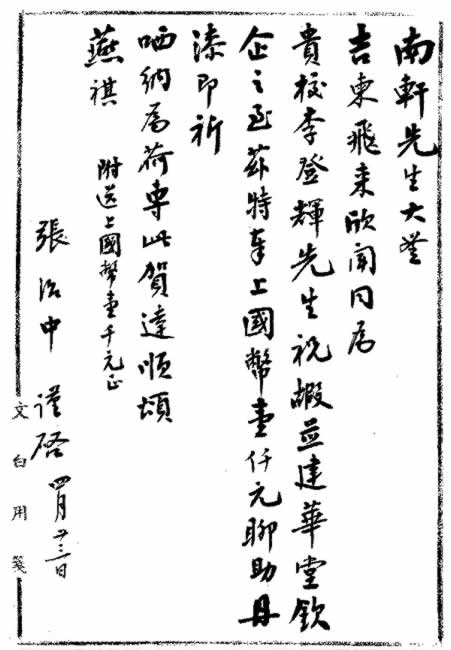 南軒先生大鑒
吉柬飛来欣聞同局
貴校李登輝先生祝嘏並建華堂欽
企之至茲特奉上國幣壹仟元聊助丹
漆即祈
哂納為荷專此賀達順頌
燕祺
附送上國幣壹千元正
張治中 謹啓 四月廿三日
文白用箋